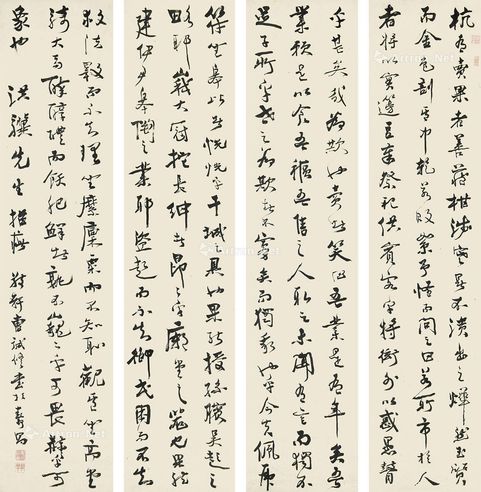 杭有賣果者善藏柑涉寒暑不潰出之燁然玉質
而金色剖其中乾若敗絮予怪而問之曰若所市於人
者將實籩豆奉祭祀供賓客乎將衒外以惑愚瞽
乎甚矣哉為欺也賣者笑曰吾業是有年矣吾
業賴是以食吾軀吾售之人取之未聞有言而獨不
足子所乎世之為欺者不寡矣而獨我也乎今夫佩虎
符坐皋比者恍恍乎干城具也果能授孫臏吳起之
略耶峩大冠拖長紳者昂昂乎廟堂之器也果能
建伊尹皋陶之業耶盜起而不知御民困而不知
救法斁而不知理坐糜廩粟而不知恥觀其坐高堂
騎大馬醉醇醴而飫肥鮮者孰不巍巍乎可畏赫乎可
象也 洪驥先生雅